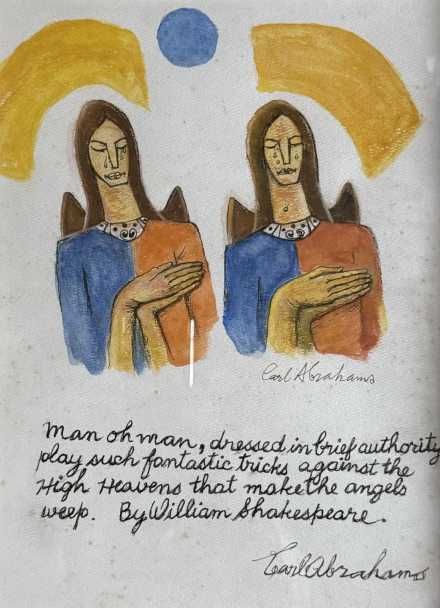 Carl Abrahams
Man oh man, dressed in brief authority
play such fantastic tricks against the
High Heavens that make the angels
weep. By William Shakespeare.
Carl Abrahams